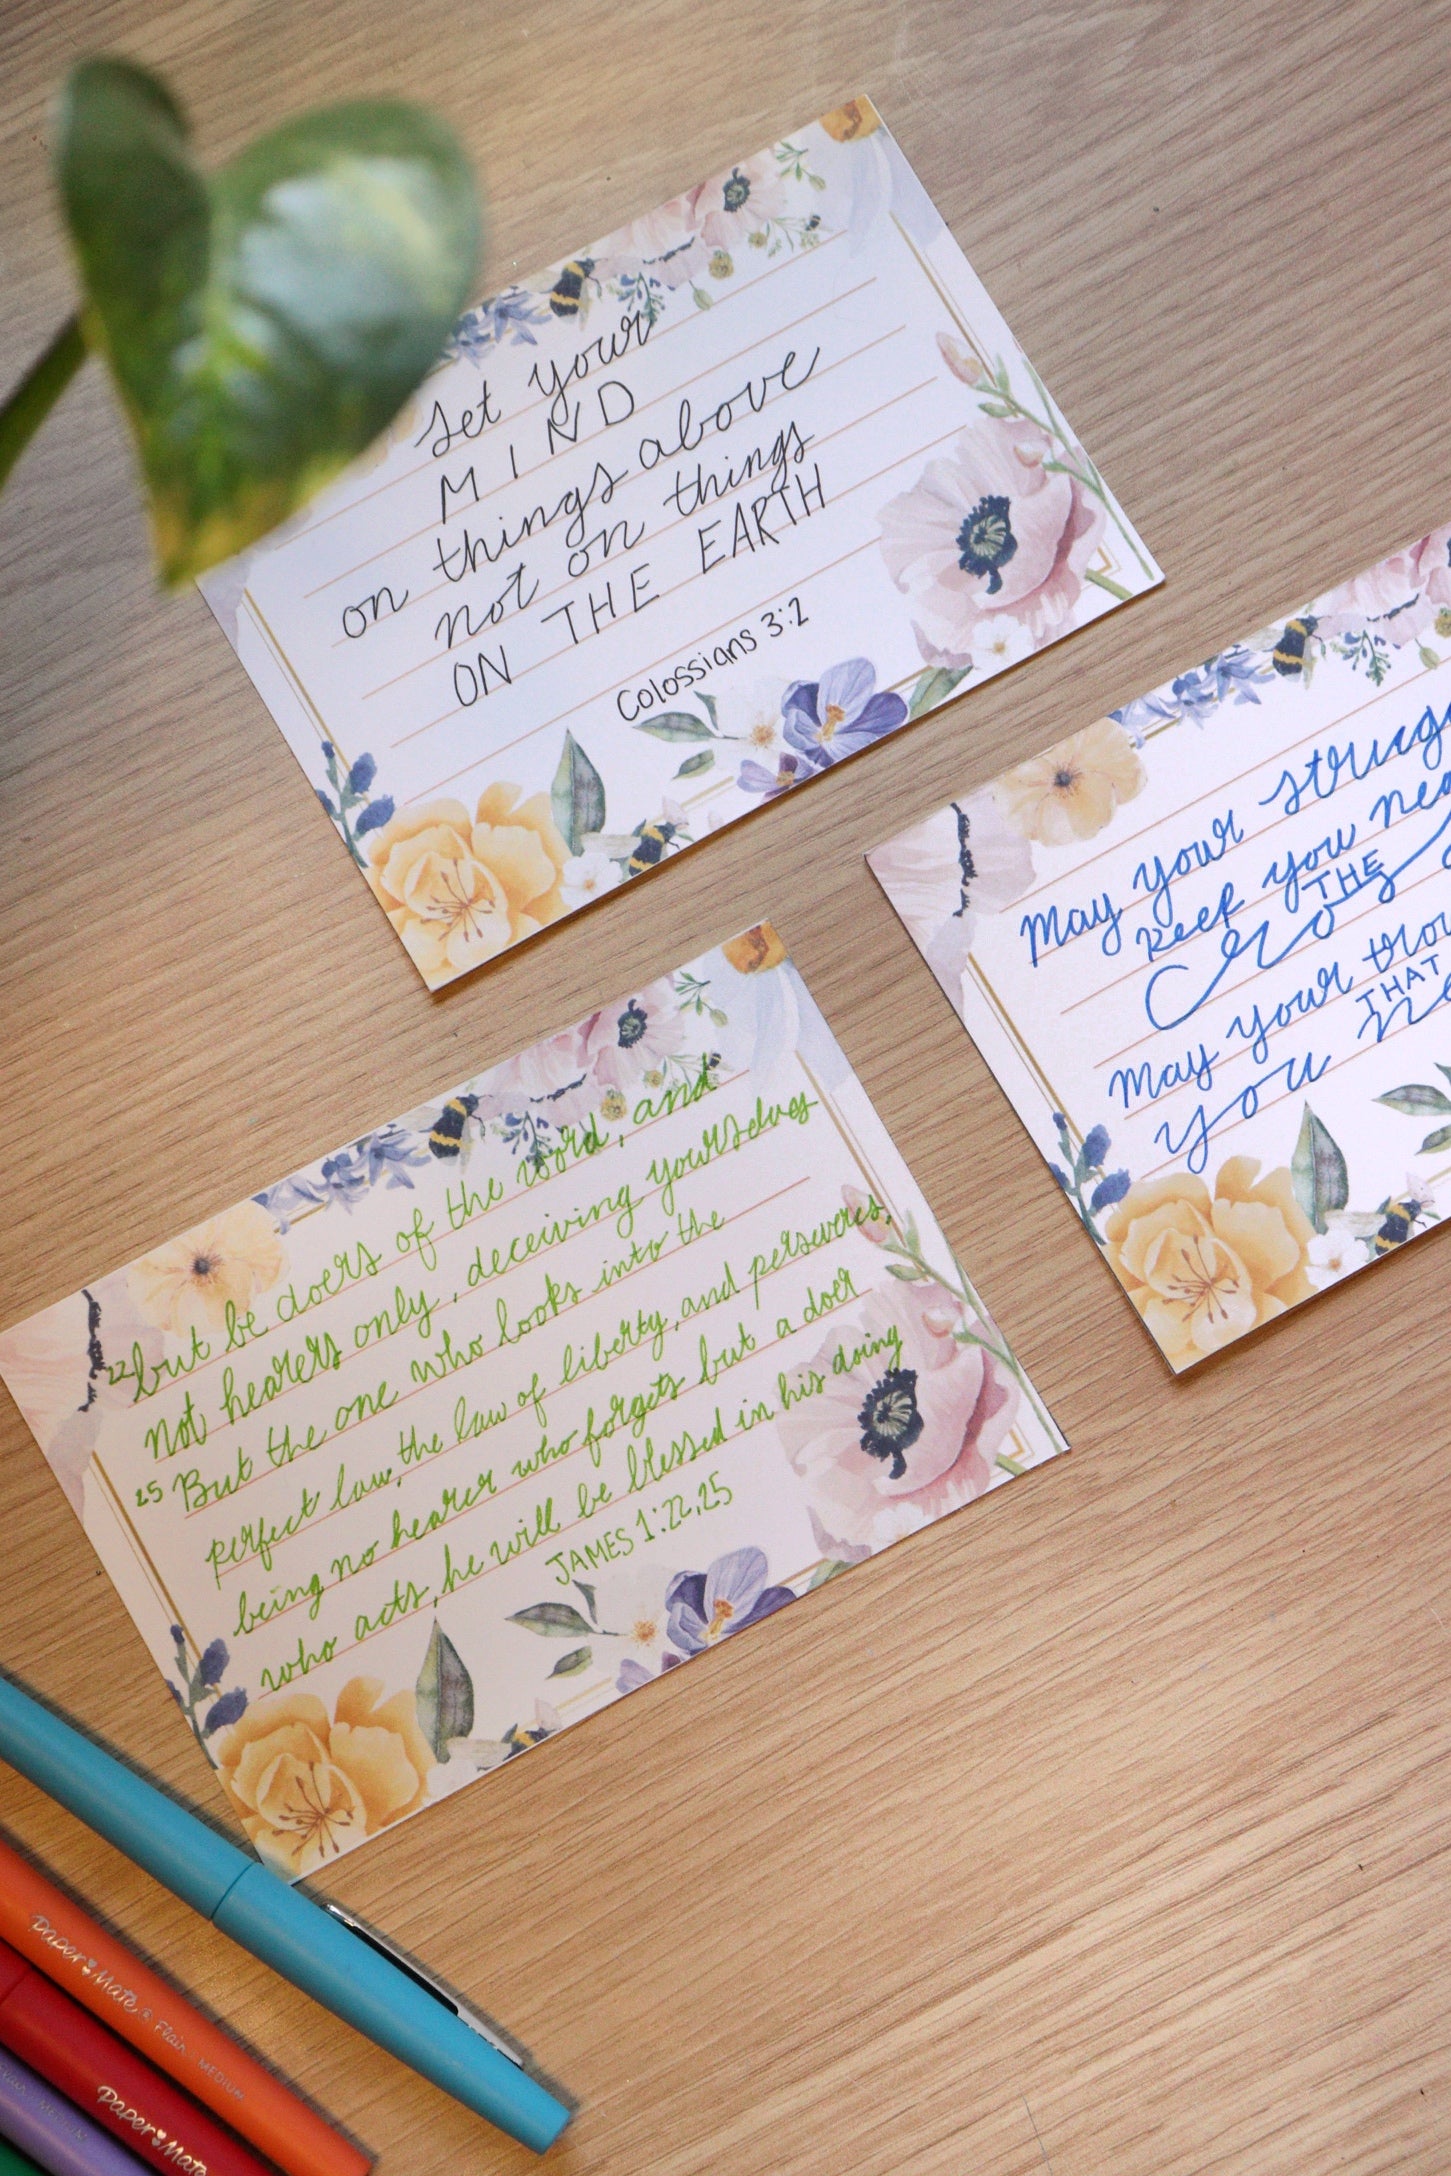 Set your
MIND
on things above
not on things
ON THE EARTH
Colossians 3:2
May your strugg
keep you nea
THE
Cros
May your trou
THAT
you ne
22 but be doers of the word, and
not hearers only, deceiving yourselves
25 But the one who looks into the
perfect law, the law of liberty, and perseveres,
being no hearer who forgets but a doer
who acts, he will be blessed in his doing
JAMES 1:22,25
Paper Mate® Flair MEDIUM
Paper Mate
Flair